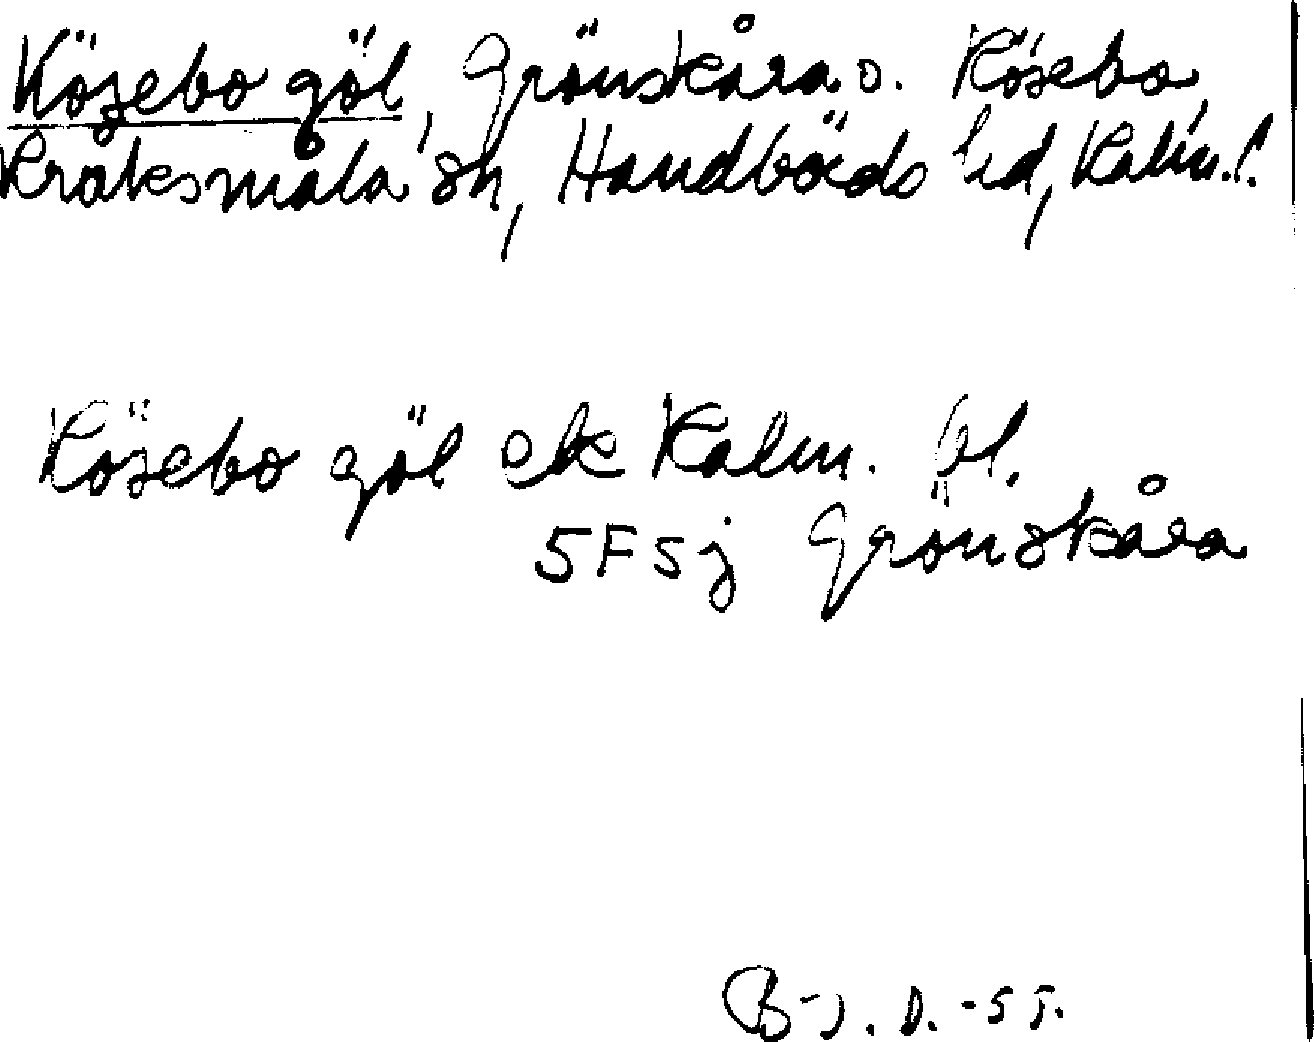 Kösebo göl, Grönskåra o. Kösebo,
Kråksmåla sn, Handbörds hd, Kalm. l.
Kösebo göl ek Kalm. bl.
5F5j Grönskåra
B-J. D. -55.